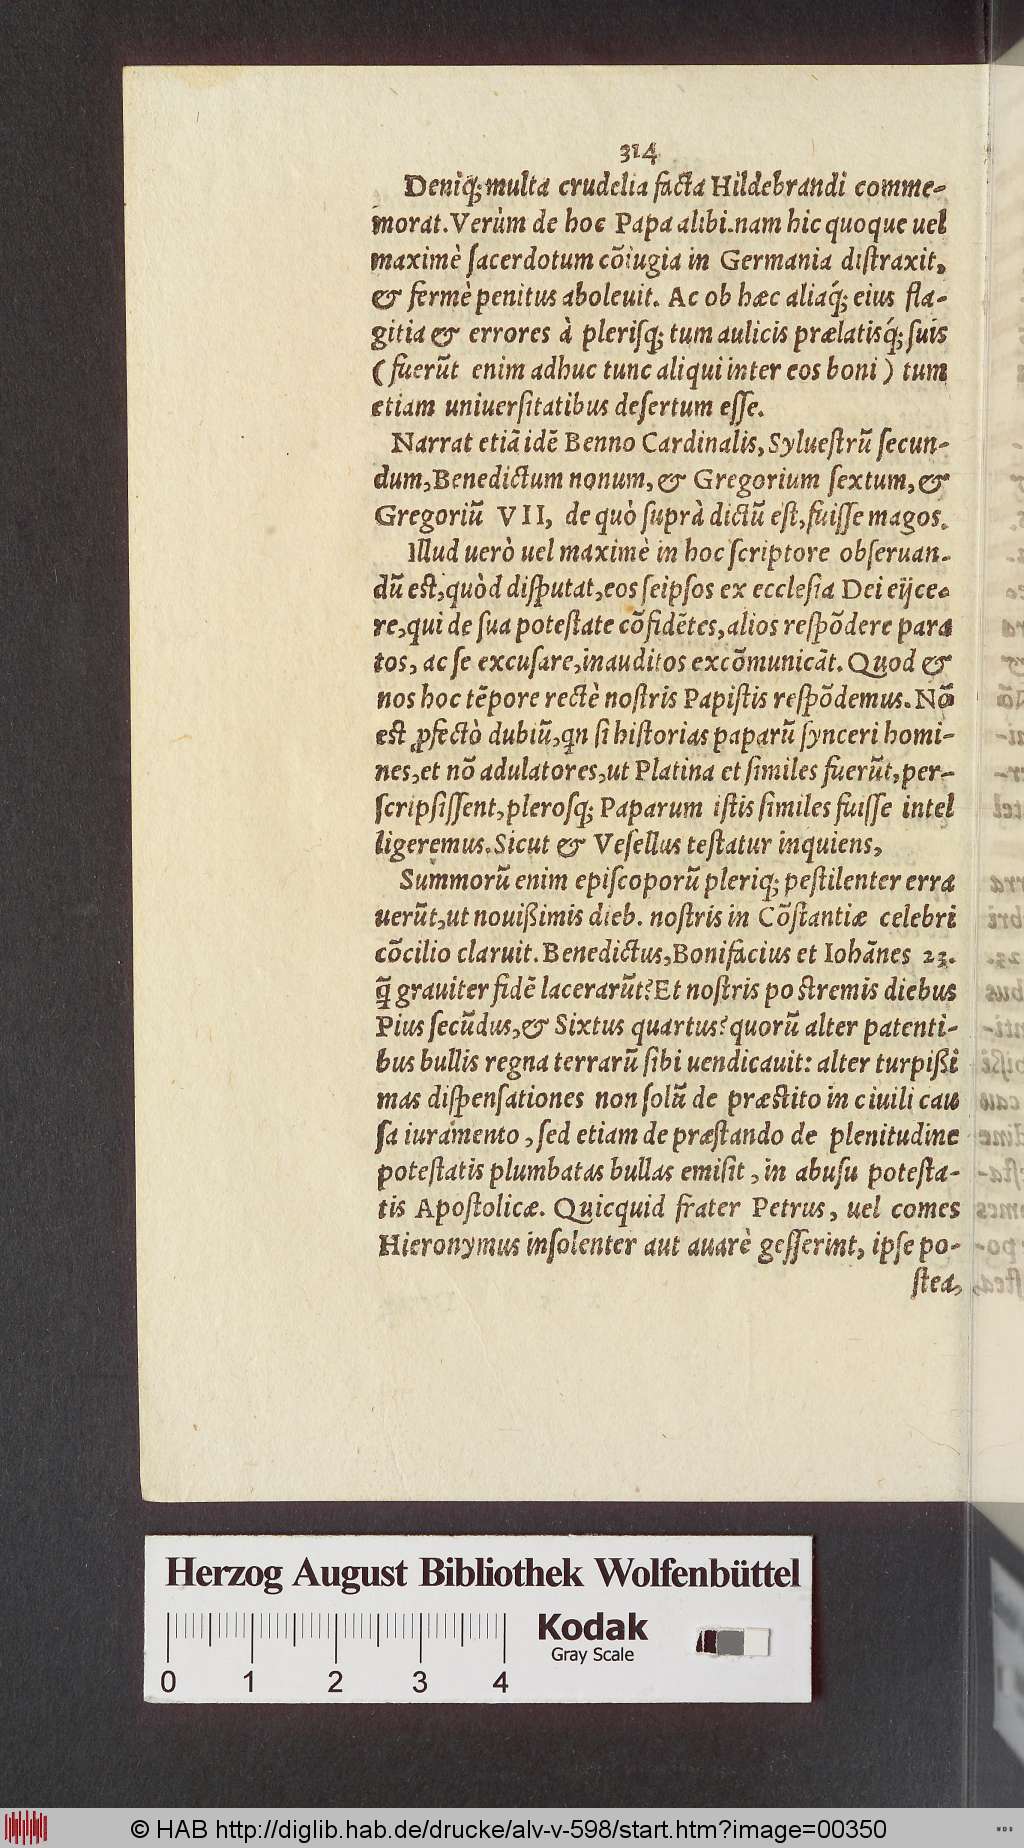 314
Deniq; multa crudelia facta Hildebrandi comme-
morat. Verùm de hoc Papa alibi. nam hic quoque uel
maximè ſacerdotum cõiugia in Germania diſtraxit,
& fermè penitus aboleuit. Ac ob hæc aliaq́; eius fla-
gitia & errores à pleriſq; tum aulicis prælatisq́; ſuis
( fuerũt enim adhuc tunc aliqui inter eos boni ) tum
etiam uniuerſitatibus deſertum eſſe.
Narrat etiã idẽ Benno Cardinalis, Sylueſtrũ ſecun-
dum, Benedictum nonum, & Gregorium ſextum, &
Gregoriũ VII, de quò ſuprà dictũ eſt, fuiſſe magos.
Illud uerò uel maximè in hoc ſcriptore obſeruan-
dũ eſt, quòd diſputat, eos ſeipſos ex eccleſia Dei eijce-
re, qui de ſua poteſtate cõfidẽtes, alios reſpõdere para
tos, ac ſe excuſare, inauditos excõmunicãt. Quod &
nos hoc tẽpore rectè noſtris Papiſtis reſpõdemus. Nõ
eſt ꝓfectò dubiũ, qn ſi hiſtorias paparũ ſynceri homi-
nes, et nõ adulatores, ut Platina et ſimiles fuerũt, per-
ſcripſiſſent, pleroſq; Paparum iſtis ſimiles fuiſſe intel
ligeremus. Sicut & Veſellus teſtatur inquiens,
Summorũ enim epiſcoporũ pleriq; peſtilenter erra
uerũt, ut nouißimis dieb. noſtris in Cõſtantiæ celebri
cõcilio claruit. Benedictus, Bonifacius et Iohãnes 23.
q̃ grauiter fidẽ lacerarũt? Et noſtris poſtremis diebus
Pius ſecũdus, & Sixtus quartus? quorũ alter patenti-
bus bullis regna terrarũ ſibi uendicauit: alter turpißi
mas diſpenſationes non ſolũ de præſtito in ciuili cau
ſa iuramento, ſed etiam de præſtando de plenitudine
poteſtatis plumbatas bullas emiſit, in abuſu poteſta-
tis Apoſtolicæ. Quicquid frater Petrus, uel comes
Hieronymus inſolenter aut auarè geſſerint, ipſe po-
ſtea,
Herzog August Bibliothek Wolfenbüttel
Kodak
Gray Scale
0 1 2 3 4
© HAB http://diglib.hab.de/drucke/alv-v-598/start.htm?image=00350